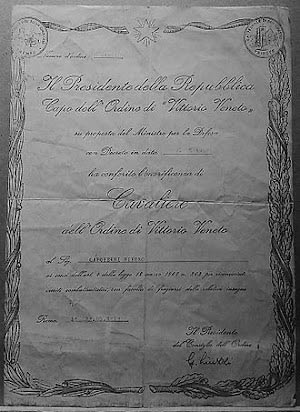 Il Presidente della Repubblica
Capo dell'Ordine di "Vittorio Veneto"
su proposta del Ministro per la Difesa
con Decreto in data
ha conferito l'onorificenza di
Cavaliere
dell'Ordine di Vittorio Veneto
al Sig.
ai sensi dell'art. 4 della legge 18 marzo 1968 n. 263 per riconosciuti
meriti combattentistici, con facoltà di fregiarsi della relativa insegna
Roma,
Il Presidente
del Consiglio dell'Ordine